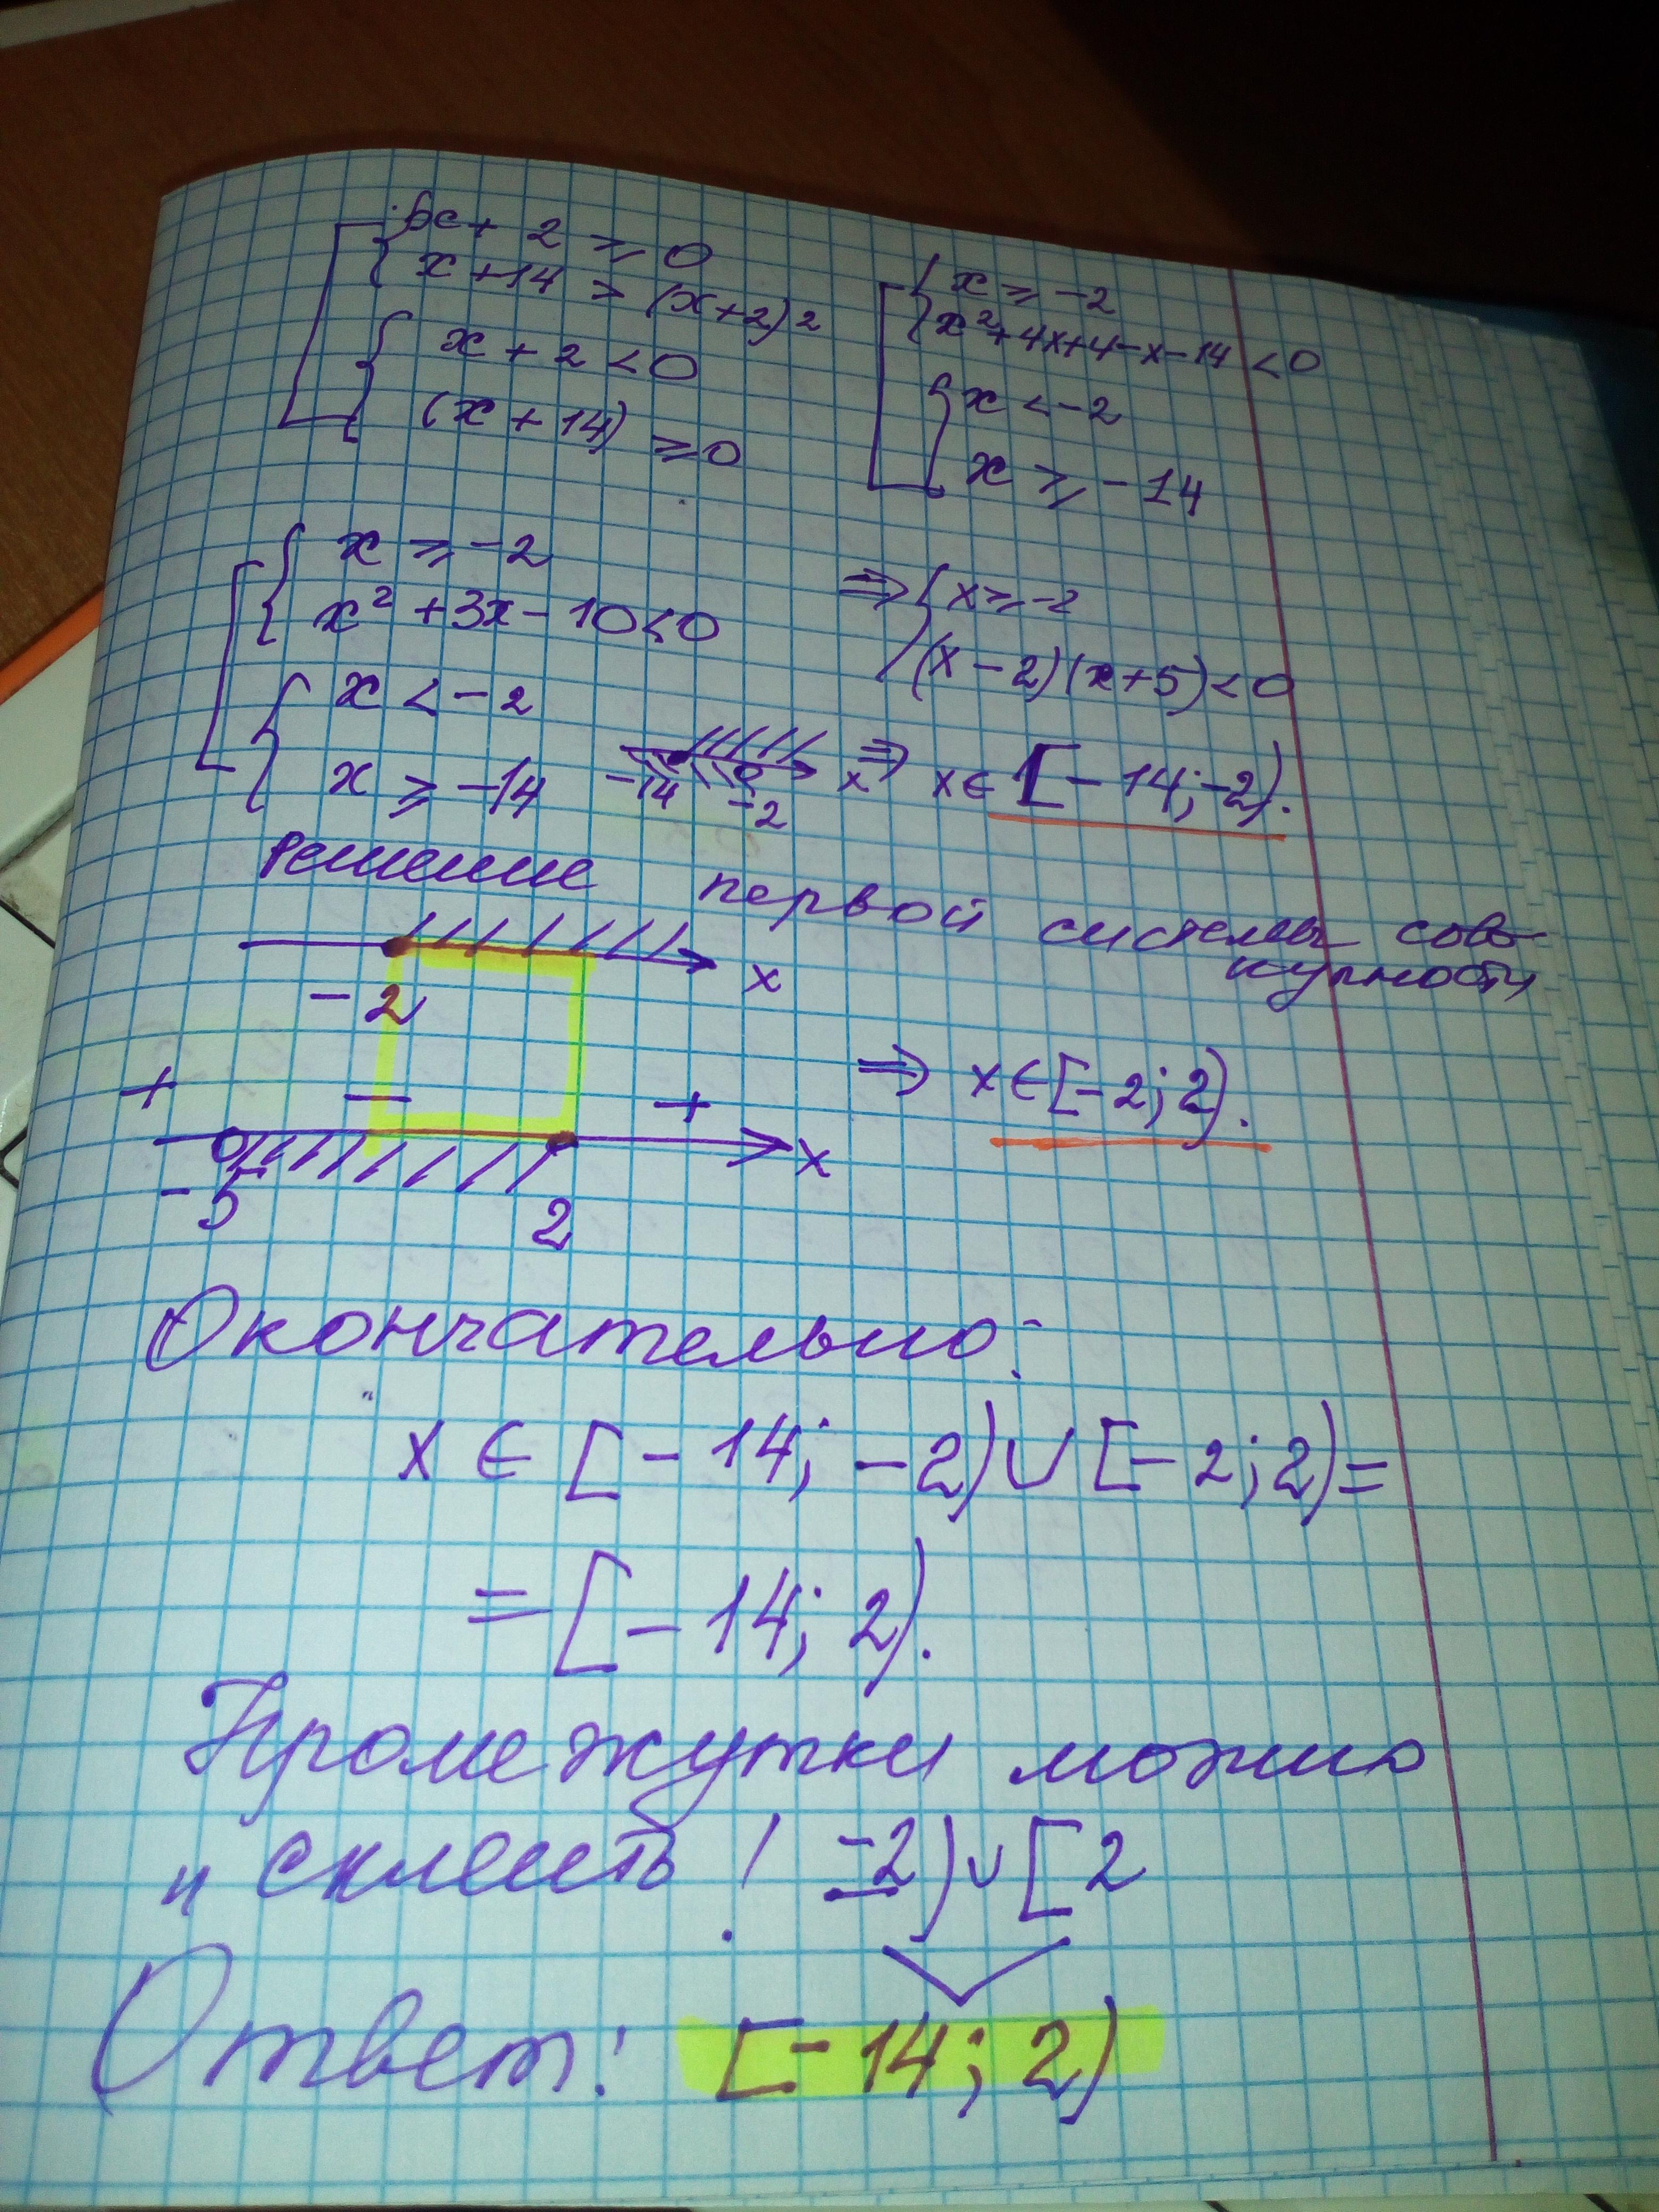 x + 2 ⩾ 0
x + 14 > (x+2)2
x + 2 < 0
(x + 14) ⩾ 0
x ⩾ -2
x² + 4x + 4 - x - 14 < 0
x < -2
x ⩾ -14
x ⩾ -2
x² + 3x - 10 < 0
x < -2
x ⩾ -14
⇒ x ⩾ -2
(x - 2)(x + 5) < 0
-14 -2 x ⇒ x ∈ [-14; -2).
Решение первой системы сово-
купности
-2 x
+ - +
-5 2 x
⇒ x ∈ [-2; 2).
Окончательно:
x ∈ [-14; -2) ∪ [-2; 2) =
= [-14; 2).
Промежутки можно
„склеить! -2) ∪ [2
Ответ: [-14; 2)